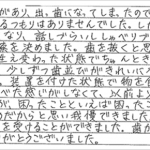 があり、出、歯になってしまったので
るつもりはありませんでした。しか
なり、話しづらいししゃべりづ
療を決めました。歯を抜くと思
生え変わった状態でちゃんと
少しずつ歯並びがきれいに
装置を付けた状態で物を
べた感じがしなくて、以前より
が、困ったことといえば困った
めだからと思い我慢できまし
を受けることができました。歯が
がとうございました。